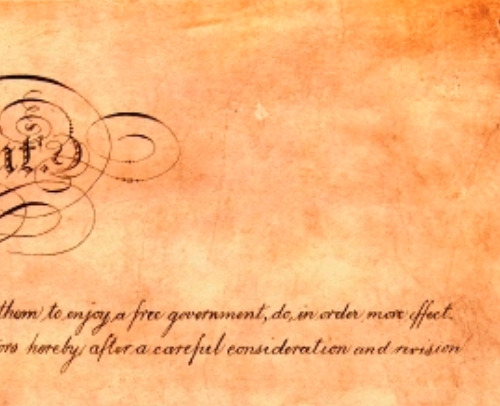 them to enjoy a free government, do, in order more effect.
ors hereby, after a careful consideration and revision